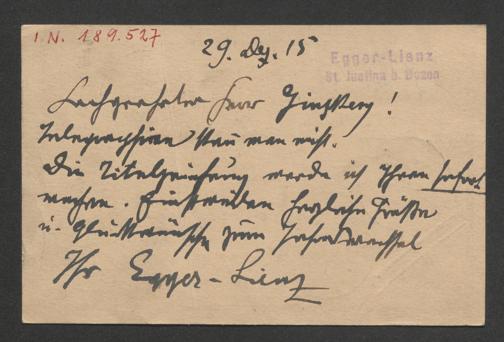 I. N. 189.527
29. Dez. 15
Egger-Lienz
St. Justina b. Bozen
Hochgeehrter Herr Ginzkey!
Telegraphiren kann man nicht.
Die Titelzeichnung werde ich Ihnen sofort
machen. Einstweilen herzliche Grüße
u. Glückwünsche zum Jahreswechsel
Ihr Egger-Lienz